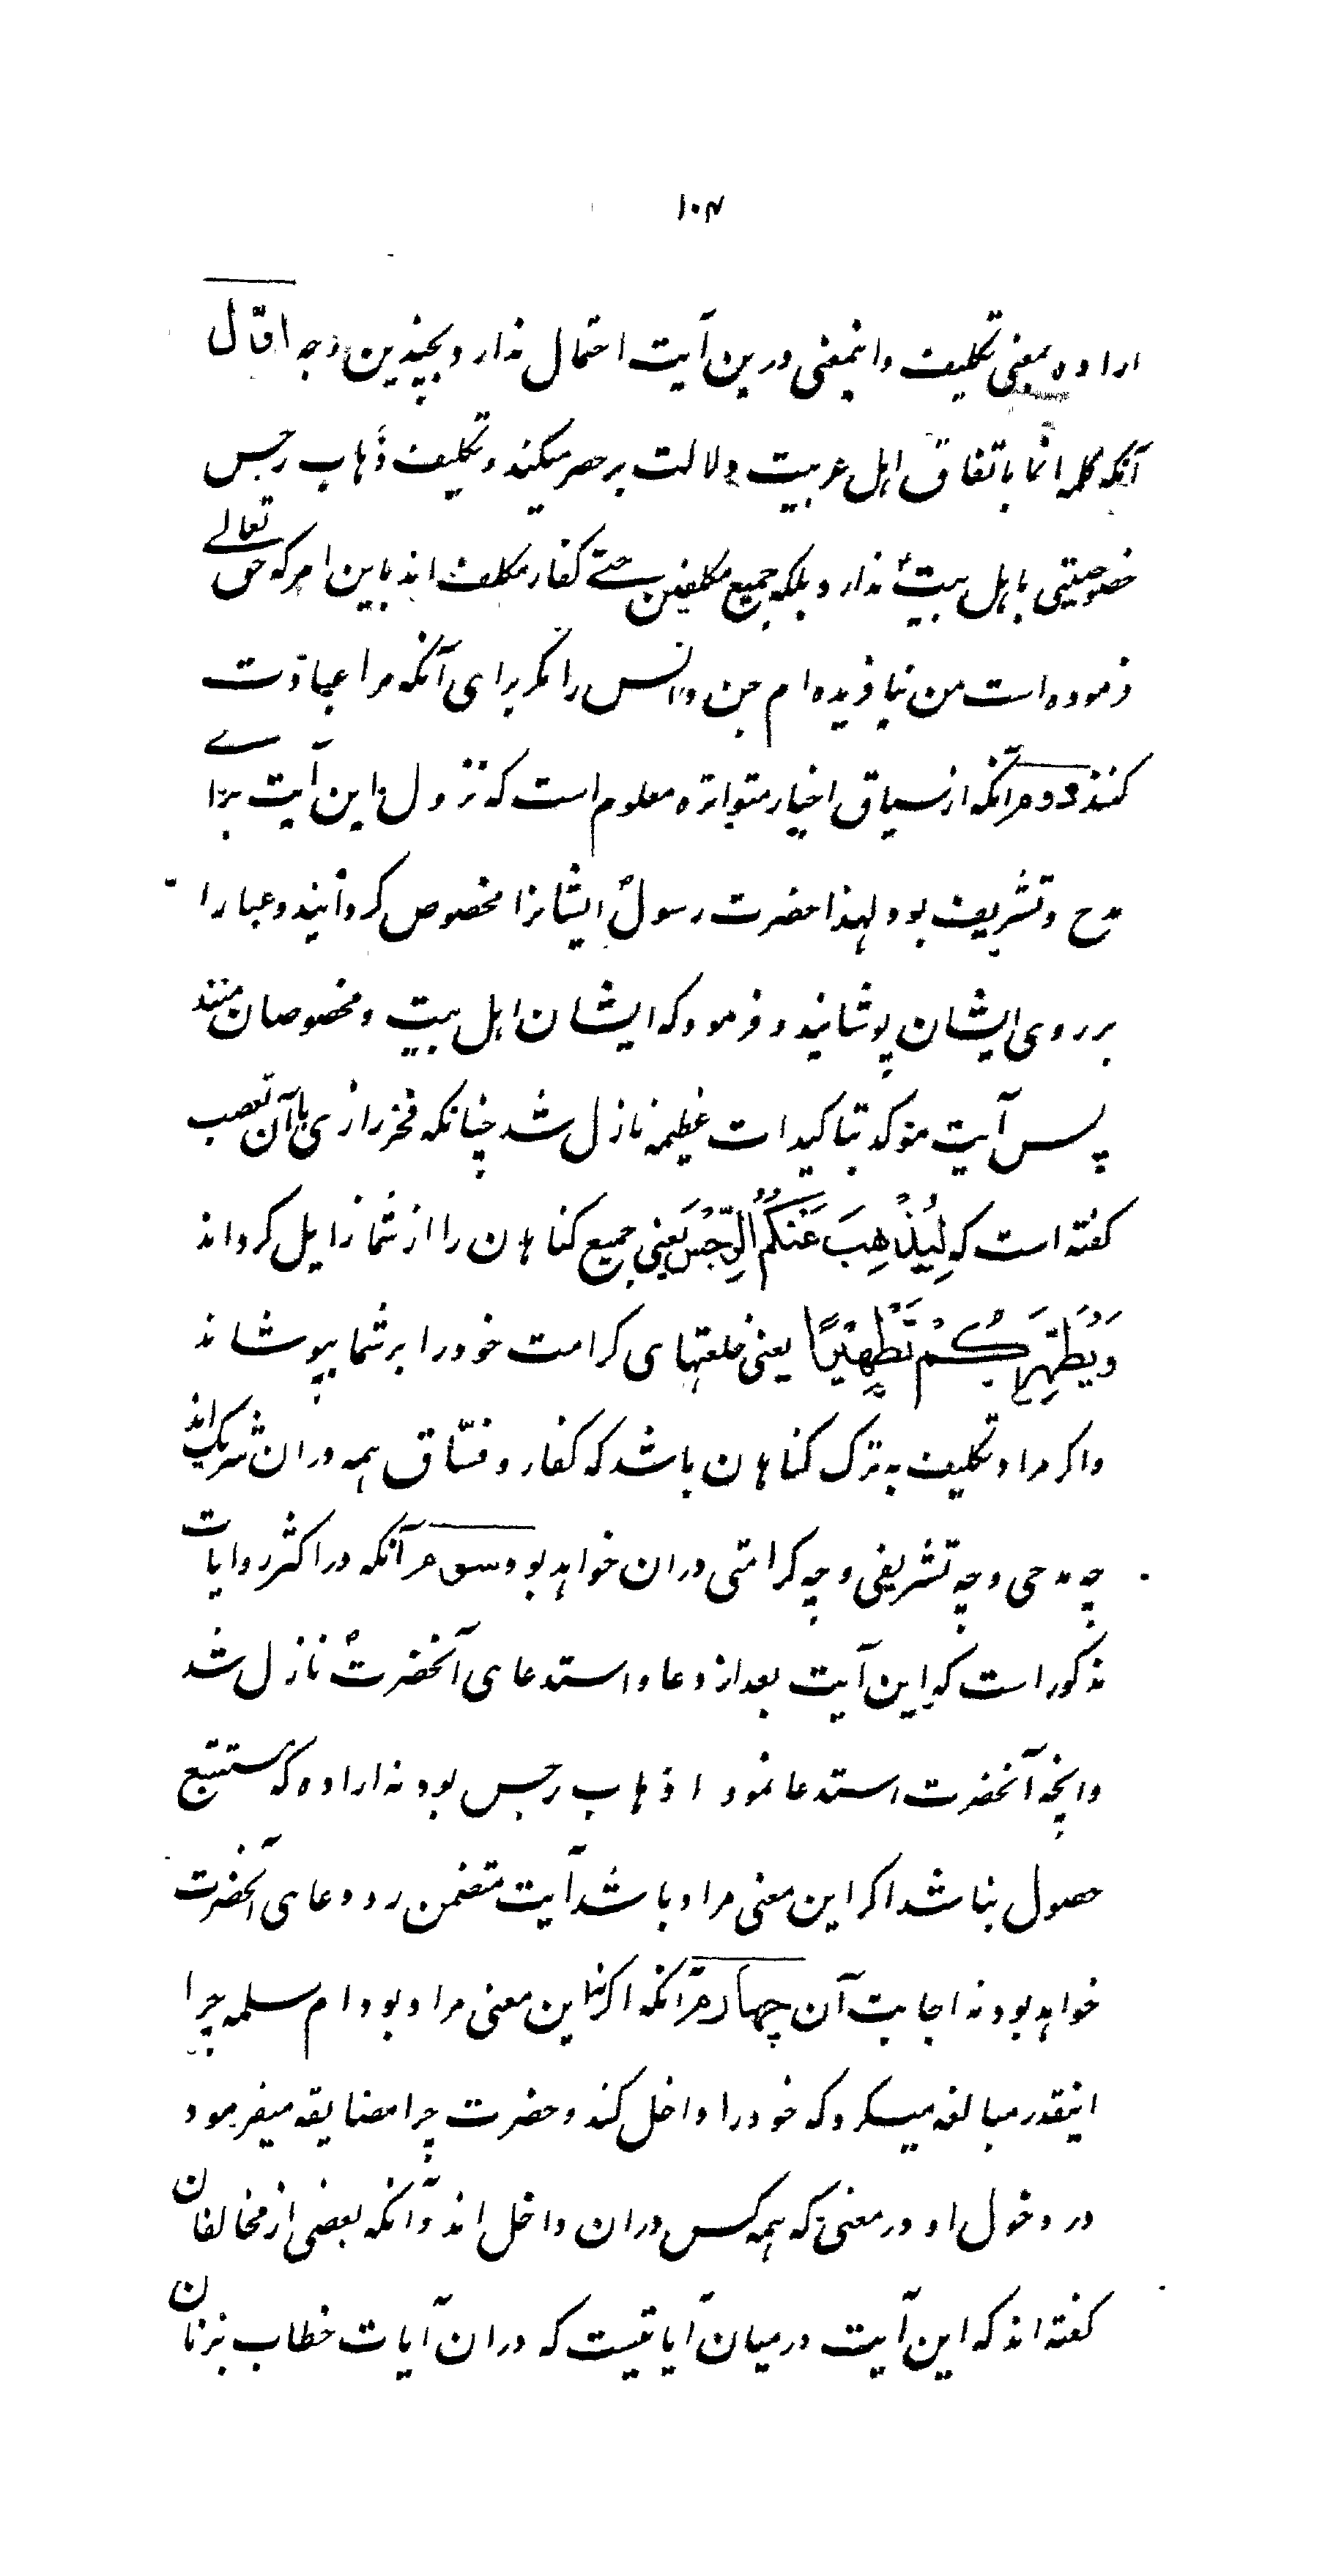 ۱۰۴
اراده بمعنی تکلیف و اینمعنی درین آیت احتمال ندارد بچندین وجه اوّل
آنکه کلمه انما باتفاق اهل عربیت دلالت بر حصر میکند و تکلیف ذهاب رجس
خصوصیتی باهل بیت ندارد بلکه جمیع مکلفین حتے کفار مکلف اند باین امر که حق تعالے
فرموده است من نیافریده ام جن و انس را مگر برای آنکه مرا عبادت
کنند دوم آنکه از سیاق اخبار متواتره معلوم است که نزول این آیت براے
مدح و تشریف بود لهذا حضرت رسولؐ ایشانرا مخصوص کردانید و عبا را
بر روی ایشان پوشانید و فرمود که ایشان اهل بیت و مخصوصان منند
پس آیت مؤکد بتاکیدات عظیمه نازل شد چنانکه فخر رازی باآن تعصب
کفته است که لِیُذْهِبَ عَنْکُمُ الرِّجْسَ یعنی جمیع کناهان را از شما زایل کرداند
وَیُطَهِّرَکُمْ تَطْهِیْرًا یعنی خلعتهای کرامت خود را بر شما بپوشاند
واکر مراد تکلیف به ترک کناهان باشد که کفار و فسّاق همه دران شریک اند
چه مدحی و چه تشریفی و چه کرامتی دران خواهد بود سوم آنکه در اکثر روایات
مذکور است که این آیت بعد از دعا و استدعای آنحضرتؐ نازل شد
وانچه آنحضرت استدعا نمود اذهاب رجس بود نه اراده که مستتبع
حصول نباشد اکر این معنی مراد باشد آیت متضمن رد دعای آنحضرت
خواهد بود نه اجابت آن چهارم آنکه اکر این معنی مراد بود ام سلمه چرا
اینقدر مبالغه میکرد که خود را داخل کند و حضرت چرا مضایقه میفرمود
در دخول او در معنیٔ که همه کس دران داخل اند و آنکه بعضی از مخالفان
کفته اند که این آیت در میان آیاتیست که دران آیات خطاب بزنان